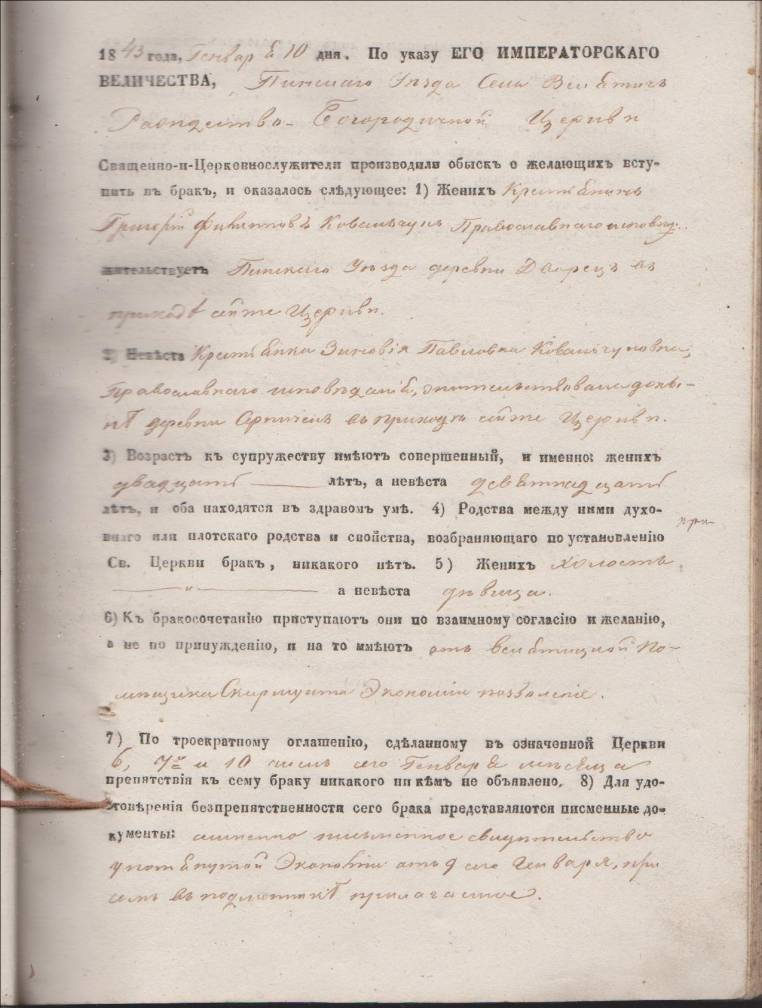 1843 года, Генваря 10 дня. По указу ЕГО ИМПЕРАТОРСКАГО
ВЕЛИЧЕСТВА, Пинскаго Уѣзда Села Велятичъ
Рождество-Богородичной Церкви
Священно-и-Церковнослужители производили обыскъ о желающихъ всту-
пить въ бракъ, и оказалось слѣдующее: 1) Женихъ Крестьянинъ
Григорій Ковальчукъ Православнаго исповѣд.
жительствуетъ Пинскаго Уѣзда деревни Дворецъ въ
приходѣ сейже Церкви.
2) Невѣста Крестьянка Зиновія Павловна Ковальчуковна,
Православнаго исповѣданія, жительствовала доны-
нѣ деревни въ приходѣ сейже Церкви.
3) Возрастъ къ супружеству имѣютъ совершенный, и именно: женихъ
двадцать лѣтъ, а невѣста девятнадцать
лѣтъ, и оба находятся въ здравомъ умѣ. 4) Родства между ними духо-
внаго или плотскаго родства и свойства, возбраняющаго по установленію
Св. Церкви бракъ, никакого нѣтъ. 5) Женихъ холостъ
а невѣста дѣвица.
6) Къ бракосочетанію приступаютъ они по взаимному согласію и желанію,
а не по принужденію, и на то имѣютъ отъ Велятицкой По-
мѣщика Скирмунта Экономіи позволеніе.
7) По троекратному оглашенію, сдѣланному въ означенной Церкви
6, 7го и 10 числъ сего Генваря мѣсяца
препятствія къ сему браку никакого никѣмъ не объявлено. 8) Для удо-
стовѣренія безпрепятственности сего брака представляются писменные до-
кументы: именно письменное свидѣтельство
упомянутой Экономіи отъ 9 сего Генваря, при
семъ въ подлинникѣ прилагаемое.